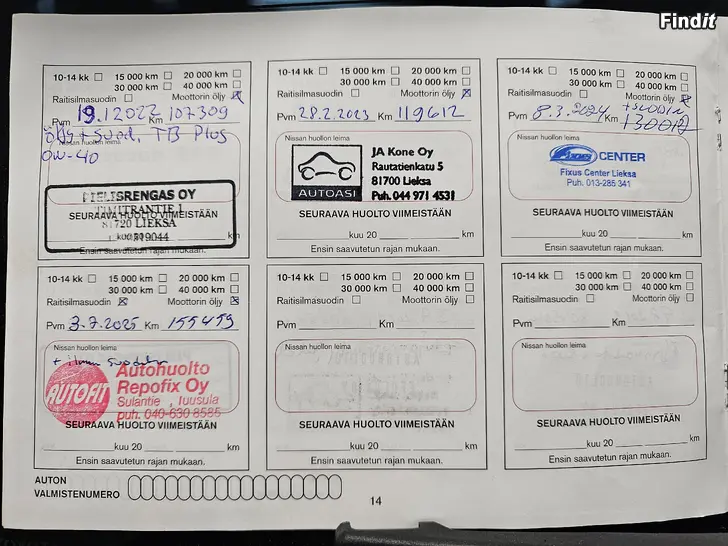 Findit
10-14 kk 15 000 km 20 000 km
30 000 km 40 000 km
Raitisilmasuodin Moottorin öljy
Pvm 19.1 2022 Km 107309
Nissan huollon leima
TB Plus
0W-40
SEURAAVA HUOLTO VIIMEISTÄÄN
81720 LIEKSA
Ensin saavutetun rajan mukaan.
10-14 kk 15 000 km 20 000 km
30 000 km 40 000 km
Raitisilmasuodin Moottorin öljy
Pvm 28.2.2023 Km 119612
Nissan huollon leima
AUTOASI
JA Kone Oy
Rautatienkatu 5
81700 Lieksa
Puh. 044 971 4531
SEURAAVA HUOLTO VIIMEISTÄÄN
kuu 20 km
Ensin saavutetun rajan mukaan.
10-14 kk 15 000 km 20 000 km
30 000 km 40 000 km
Raitisilmasuodin Moottorin öljy
Pvm 8.3.2024 Km 130012
Nissan huollon leima
Fixus CENTER
Fixus Center Lieksa
Puh. 013-286 341
SEURAAVA HUOLTO VIIMEISTÄÄN
kuu 20 km
Ensin saavutetun rajan mukaan.
10-14 kk 15 000 km 20 000 km
30 000 km 40 000 km
Raitisilmasuodin Moottorin öljy
Pvm 3.7.2025 Km 155459
Nissan huollon leima
AUTOFIT
Autohuolto
Repofix Oy
Sulantie , tuusula
puh. 040-630 8585
SEURAAVA HUOLTO VIIMEISTÄÄN
kuu 20 km
Ensin saavutetun rajan mukaan.
10-14 kk 15 000 km 20 000 km
30 000 km 40 000 km
Raitisilmasuodin Moottorin öljy
Pvm Km
Nissan huollon leima
SEURAAVA HUOLTO VIIMEISTÄÄN
kuu 20 km
Ensin saavutetun rajan mukaan.
10-14 kk 15 000 km 20 000 km
30 000 km 40 000 km
Raitisilmasuodin Moottorin öljy
Pvm Km
Nissan huollon leima
SEURAAVA HUOLTO VIIMEISTÄÄN
kuu 20 km
Ensin saavutetun rajan mukaan.
AUTON
VALMISTENUMERO
14